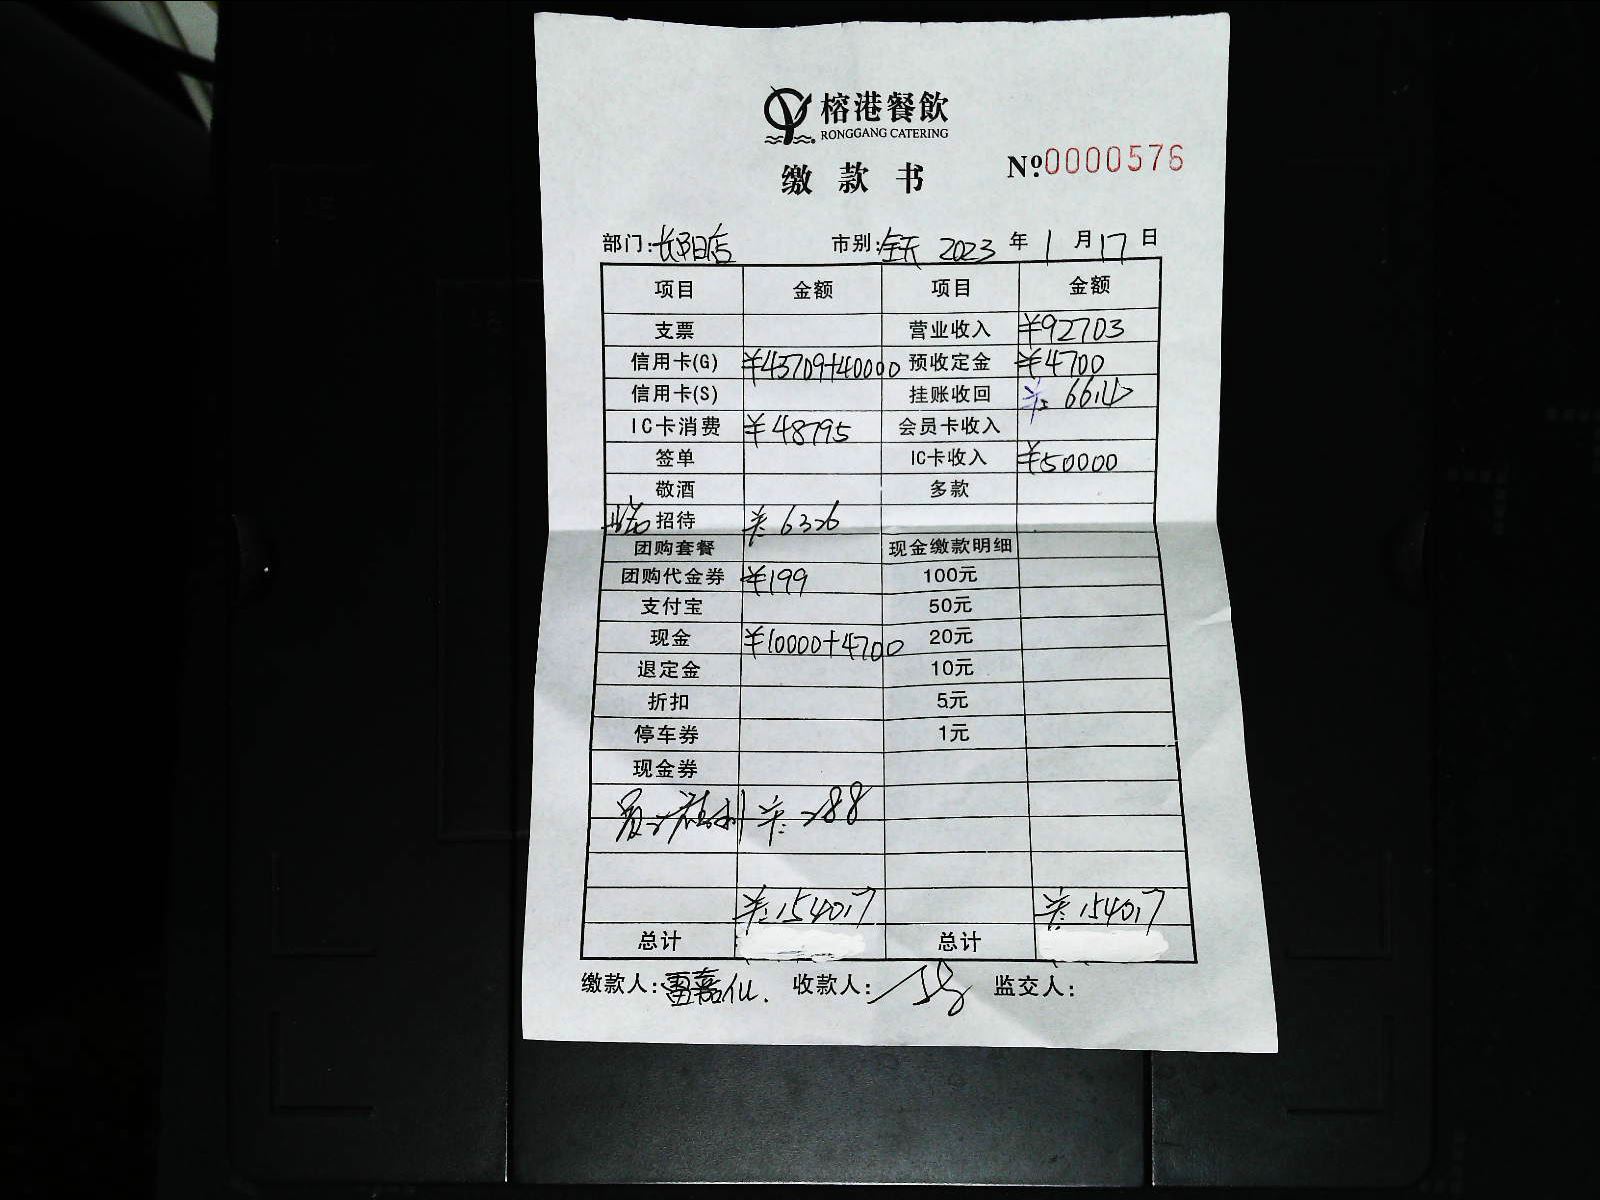 榕港餐飲
RONGGANG CATERING
缴款书 №0000576
部门:长阳店 市别:全天 2023年1月17日
项目 金额 项目 金额
支票 营业收入 ¥92703
信用卡(G) ¥43709+40000 预收定金 ¥4700
信用卡(S) 挂账收回 ¥:6614
IC卡消费 ¥48795 会员卡收入
签单 IC卡收入 ¥50000
敬酒 多款
招待 ¥:6326
团购套餐 现金缴款明细
团购代金券 ¥199 100元
支付宝 50元
现金 ¥10000+4700 20元
退定金 10元
折扣 5元
停车券 1元
现金券
员工福利 ¥:288
¥:154017 ¥:154017
总计 总计
缴款人: 收款人: 监交人: